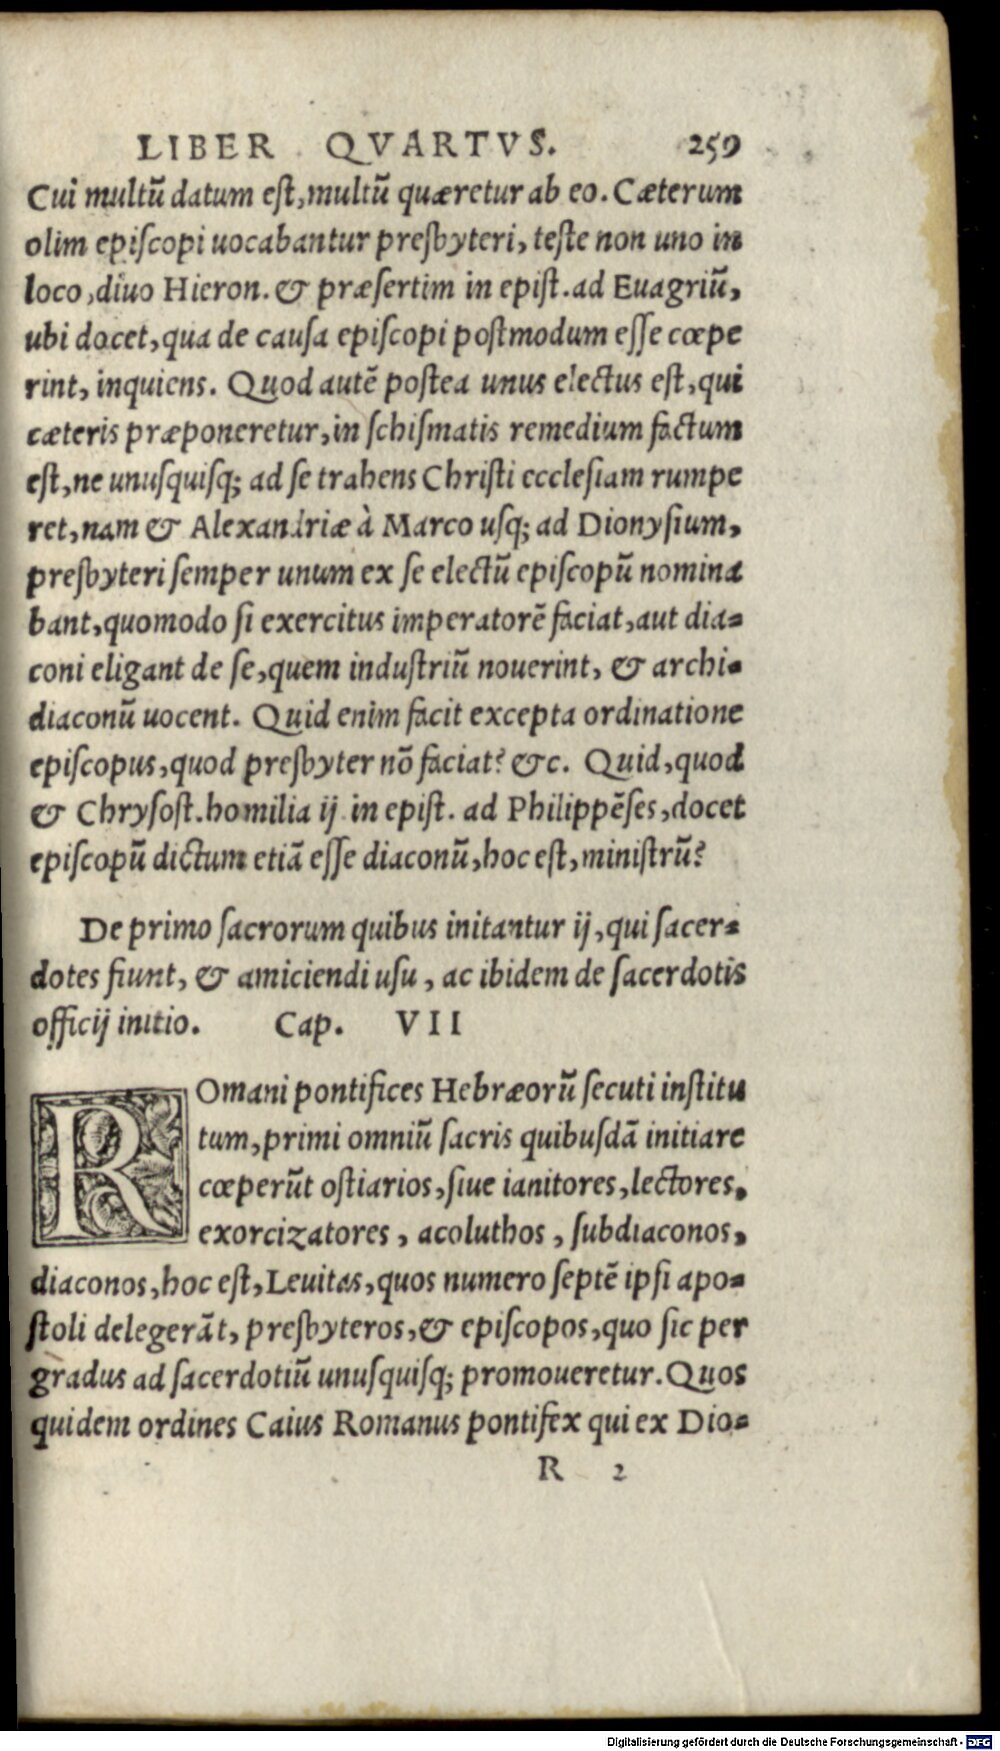 LIBER QVARTVS. 259
Cui multũ datum eſt, multũ quæretur ab eo. Cæterum
olim epiſcopi uocabantur preſbyteri, teſte non uno in
loco, diuo Hieron. & præſertim in epiſt. ad Euagriũ,
ubi docet, qua de cauſa epiſcopi poſtmodum eſſe cœpe
rint, inquiens. Quod autẽ poſtea unus electus eſt, qui
cæteris præponeretur, in ſchiſmatis remedium factum
eſt, ne unuſquiſq; ad ſe trahens Chriſti eccleſiam rumpe
ret, nam & Alexandriæ à Marco uſq; ad Dionyſium,
preſbyteri ſemper unum ex ſe electũ epiſcopũ nomina
bant, quomodo ſi exercitus imperatorẽ faciat, aut dia-
coni eligant de ſe, quem induſtriũ nouerint, & archi-
diaconũ uocent. Quid enim facit excepta ordinatione
epiſcopus, quod preſbyter nõ faciat? &c. Quid, quod
& Chryſoſt. homilia ij in epiſt. ad Philippẽſes, docet
epiſcopũ dictum etiã eſſe diaconũ, hoc eſt, miniſtrũ?
De primo ſacrorum quibus initantur ij, qui ſacer-
dotes fiunt, & amiciendi uſu, ac ibidem de ſacerdotis
officij initio. Cap. VII
ROmani pontifices Hebræorũ ſecuti inſtitu
tum, primi omniũ ſacris quibuſdã initiare
cœperũt oſtiarios, ſiue ianitores, lectores,
exorcizatores, acoluthos, ſubdiaconos,
diaconos, hoc eſt, Leuitas, quos numero ſeptẽ ipſi apo-
ſtoli delegerãt, preſbyteros, & epiſcopos, quo ſic per
gradus ad ſacerdotiũ unuſquiſq; promoueretur. Quos
quidem ordines Caius Romanus pontifex qui ex Dio-
R 2
Digitalisierung gefördert durch die Deutsche Forschungsgemeinschaft - DFG